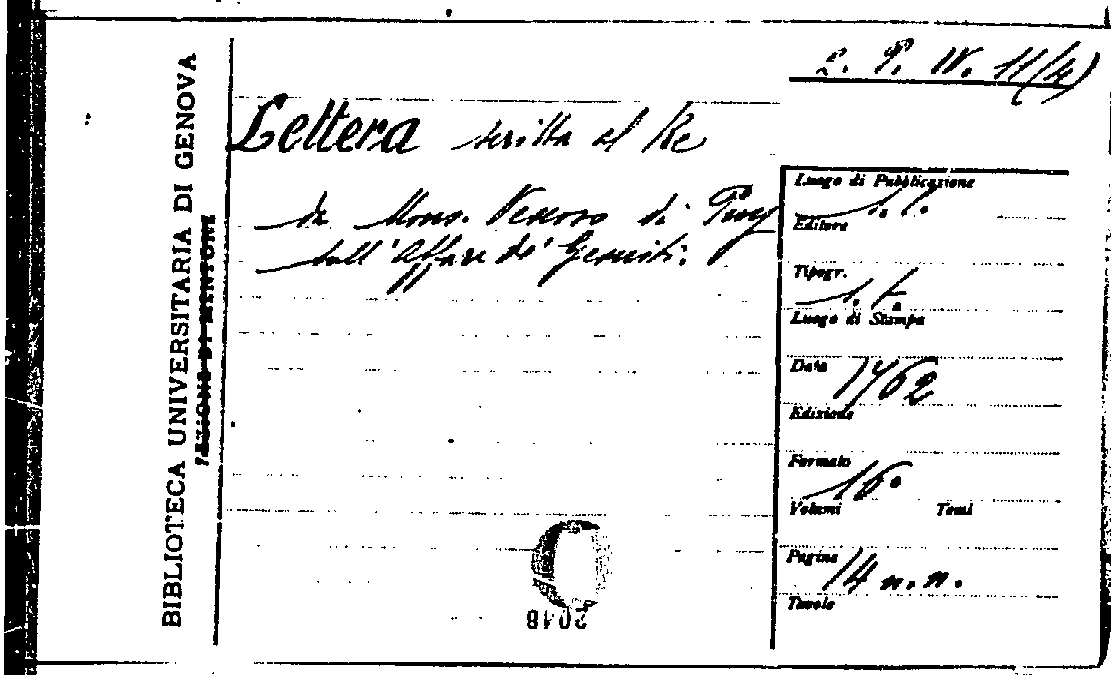 2. P. IV. 11(4)
BIBLIOTECA UNIVERSITARIA DI GENOVA
Lettera scritta al Re
da Mons. Vescovo di Puy
sull'Affare de' Gesuiti.
Luogo di Pubblicazione
s. l.
Editore
Tipogr.
s. t.
Luogo di Stampa
Data
1762
Edizione
Formato
16°
Volumi Tomi
Pagine
14 n. n.
Tavole
2048